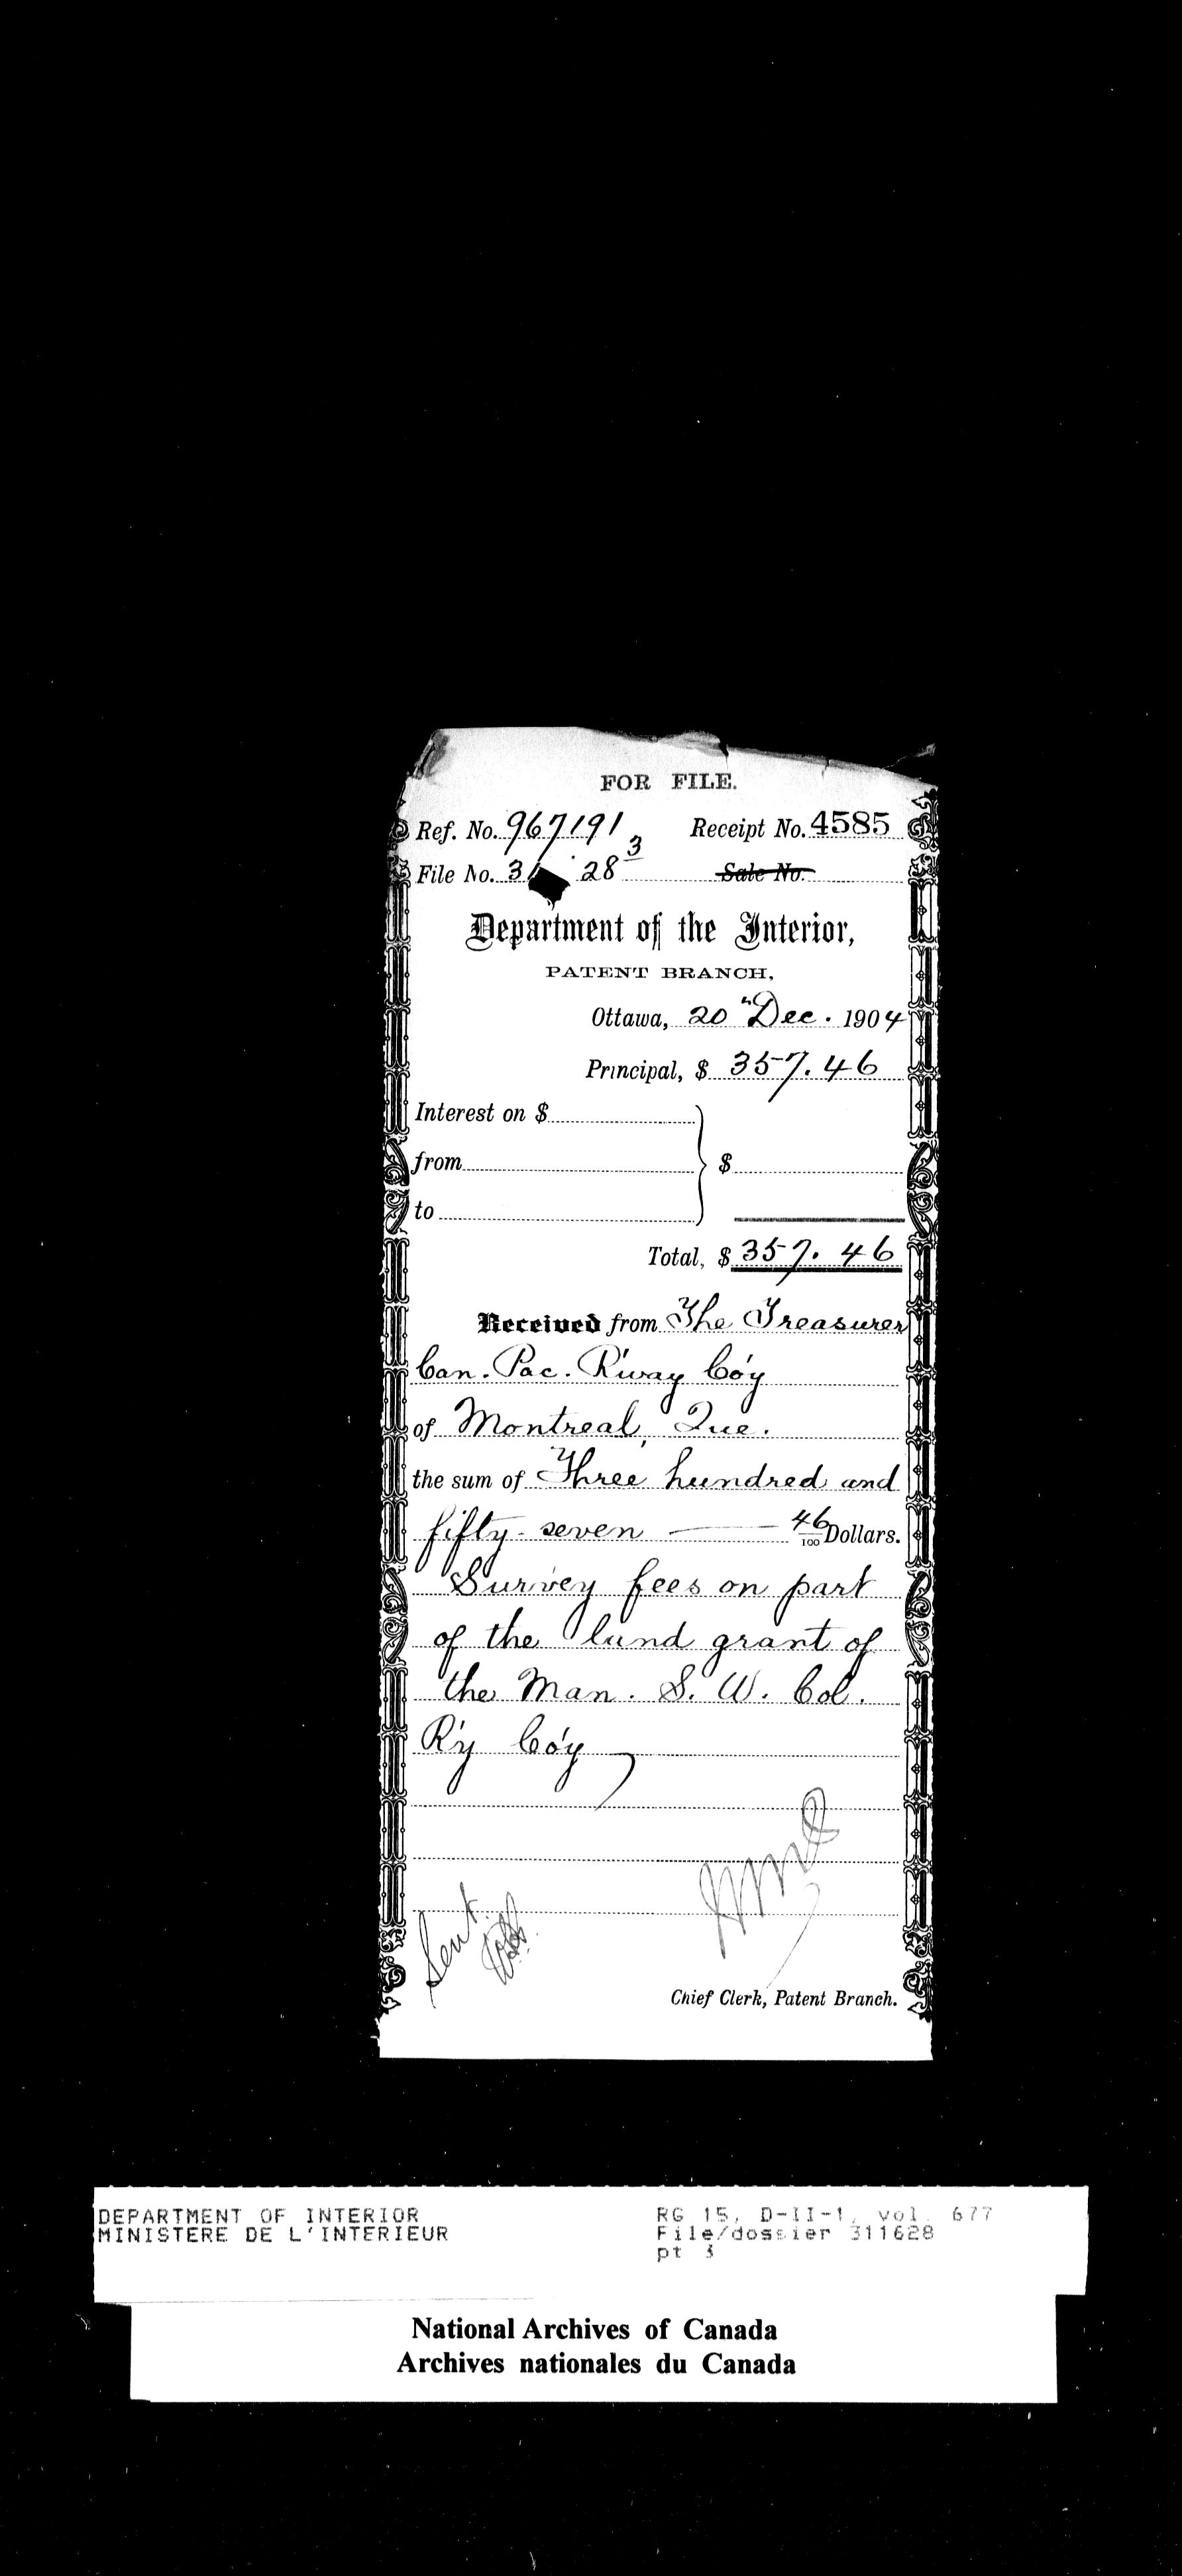 FOR FILE.
Ref. No. 967191 Receipt No. 4585
3
File No. 31 28 Sale No.
Department of the Interior,
PATENT BRANCH,
Ottawa, 20" Dec. 1904
Principal, $ 357.46
Interest on $
from $
to
Total, $ 357.46
Received from The Treasurer
Can. Pac. R'way Co'y
of Montreal, Que.
the sum of Three hundred and
fifty-seven — 46/100 Dollars.
Survey fees on part
of the land grant of
the Man. S. W. Col.
R'y Co'y
Sent.
Chief Clerk, Patent Branch.
DEPARTMENT OF INTERIOR RG 15, D-II-1, vol. 677
MINISTERE DE L'INTERIEUR File/dossier 311628
pt 3
National Archives of Canada
Archives nationales du Canada